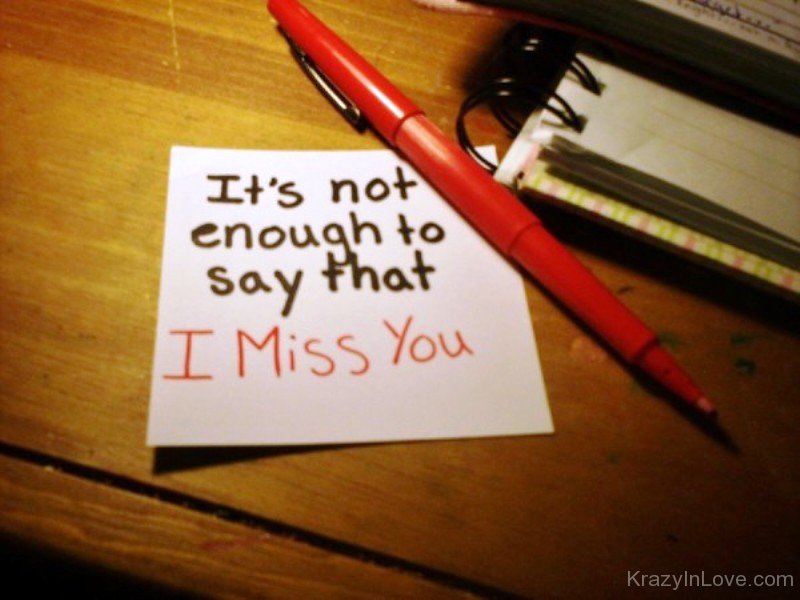 It's not
enough to
say that
I Miss You
KrazyInLove.com